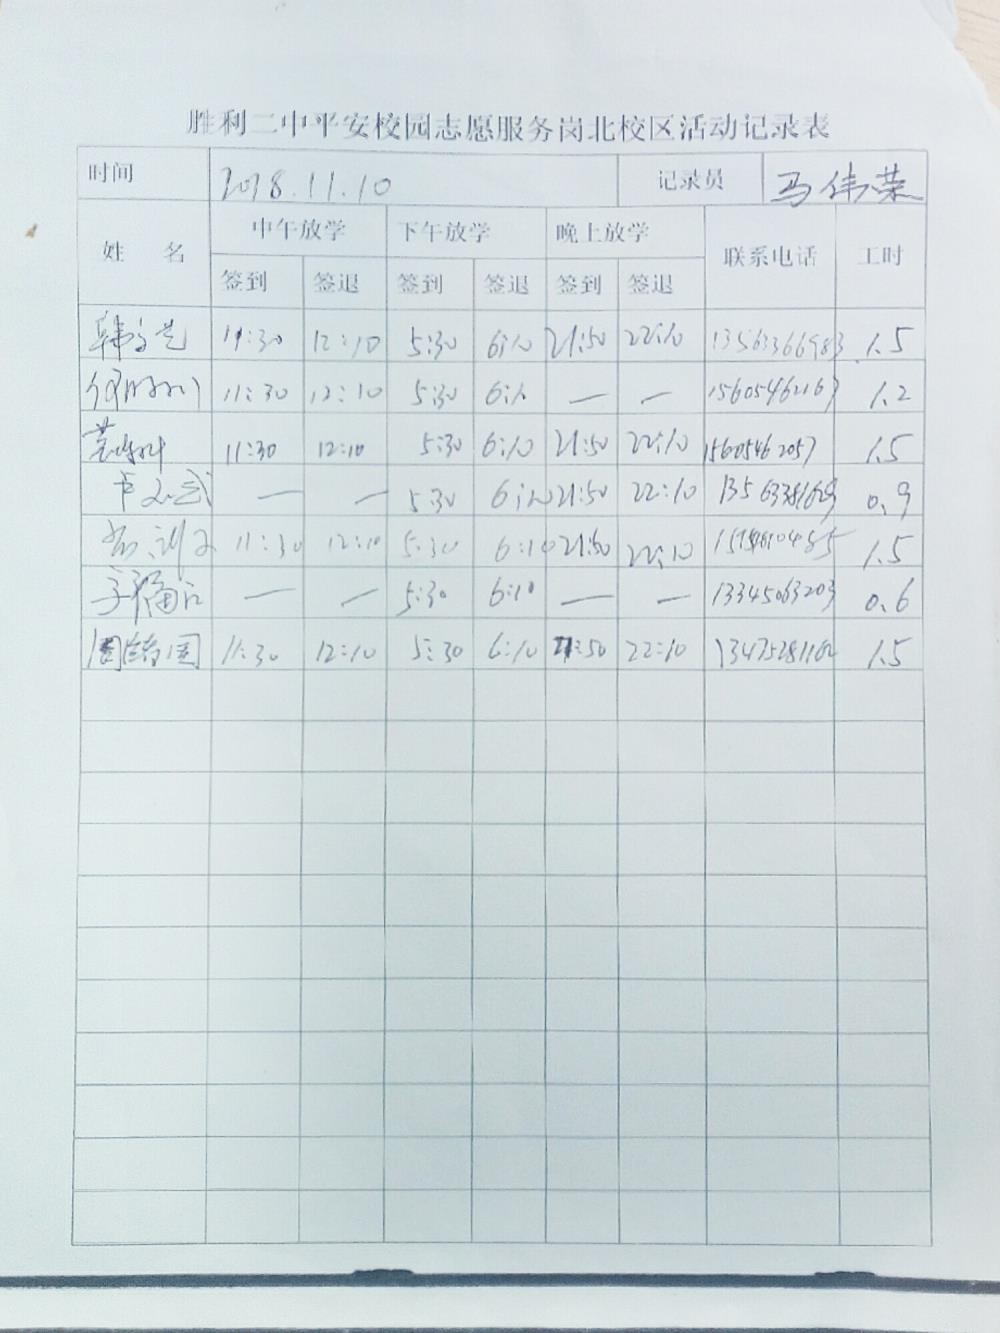 胜利二中平安校园志愿服务岗北校区活动记录表
时间 2018.11.10 记录员 马伟荣
姓 名 中午放学 下午放学 晚上放学 联系电话 工时
签到 签退 签到 签退 签到 签退
11:30 12:10 5:30 6:10 21:50 22:10 13563366983 1.5
11:30 12:10 5:30 6:10 — — 15605462163 1.2
11:30 12:10 5:30 6:10 21:50 22:10 15605462057 1.5
— — 5:30 6:10 21:50 22:10 0.9
11:30 12:10 5:30 6:10 21:50 22:10 1.5
— — 5:30 6:10 — — 13345063203 0.6
11:30 12:10 5:30 6:10 21:50 22:10 1.5